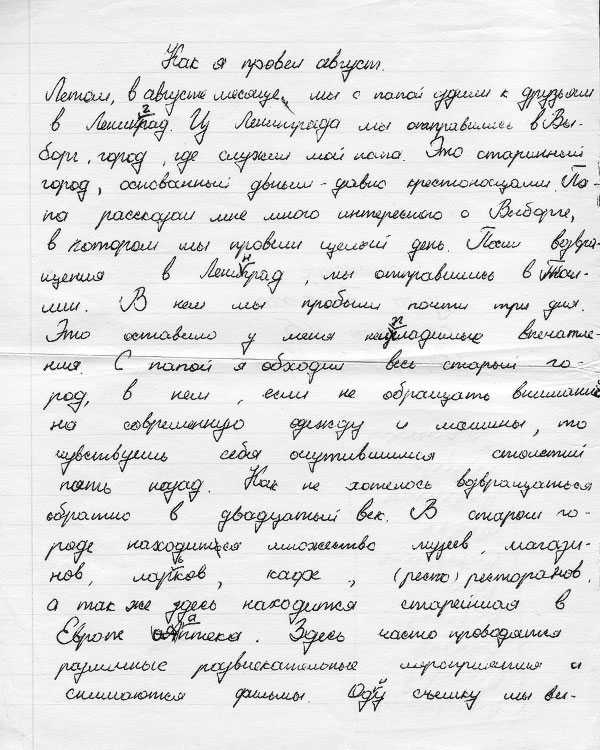 Как я провел август.
Летом, в августе месяце, мы с папой ездили к друзьям
в Ленинград. Из Ленинграда мы отправились в Вы-
борг, город, где служил мой папа. Это старинный
город, основанный давным-давно крестоносцами. Па-
па рассказал мне много интересного о Выборге,
в котором мы провели целый день. После возвра-
щения в Ленинград, мы отправились в Тал-
лин. В нем мы пробыли почти три дня.
Это оставило у меня неизгладимые впечатле-
ния. С папой я обходил весь старый го-
род, в нем, если не обращать внимания
на современную одежду и машины, то
чувствуешь себя очутившимся столетий
пять назад. Как не хотелось возвращаться
обратно в двадцатый век. В старом го-
роде находится множество музеев, магази-
нов, ларьков, кафе, (ресто) ресторанов,
а так же здесь находится старейшая в
Европе аптека. Здесь часто проводятся
различные развлекательные мероприятия и
снимаются фильмы. Одну съемку мы ви-